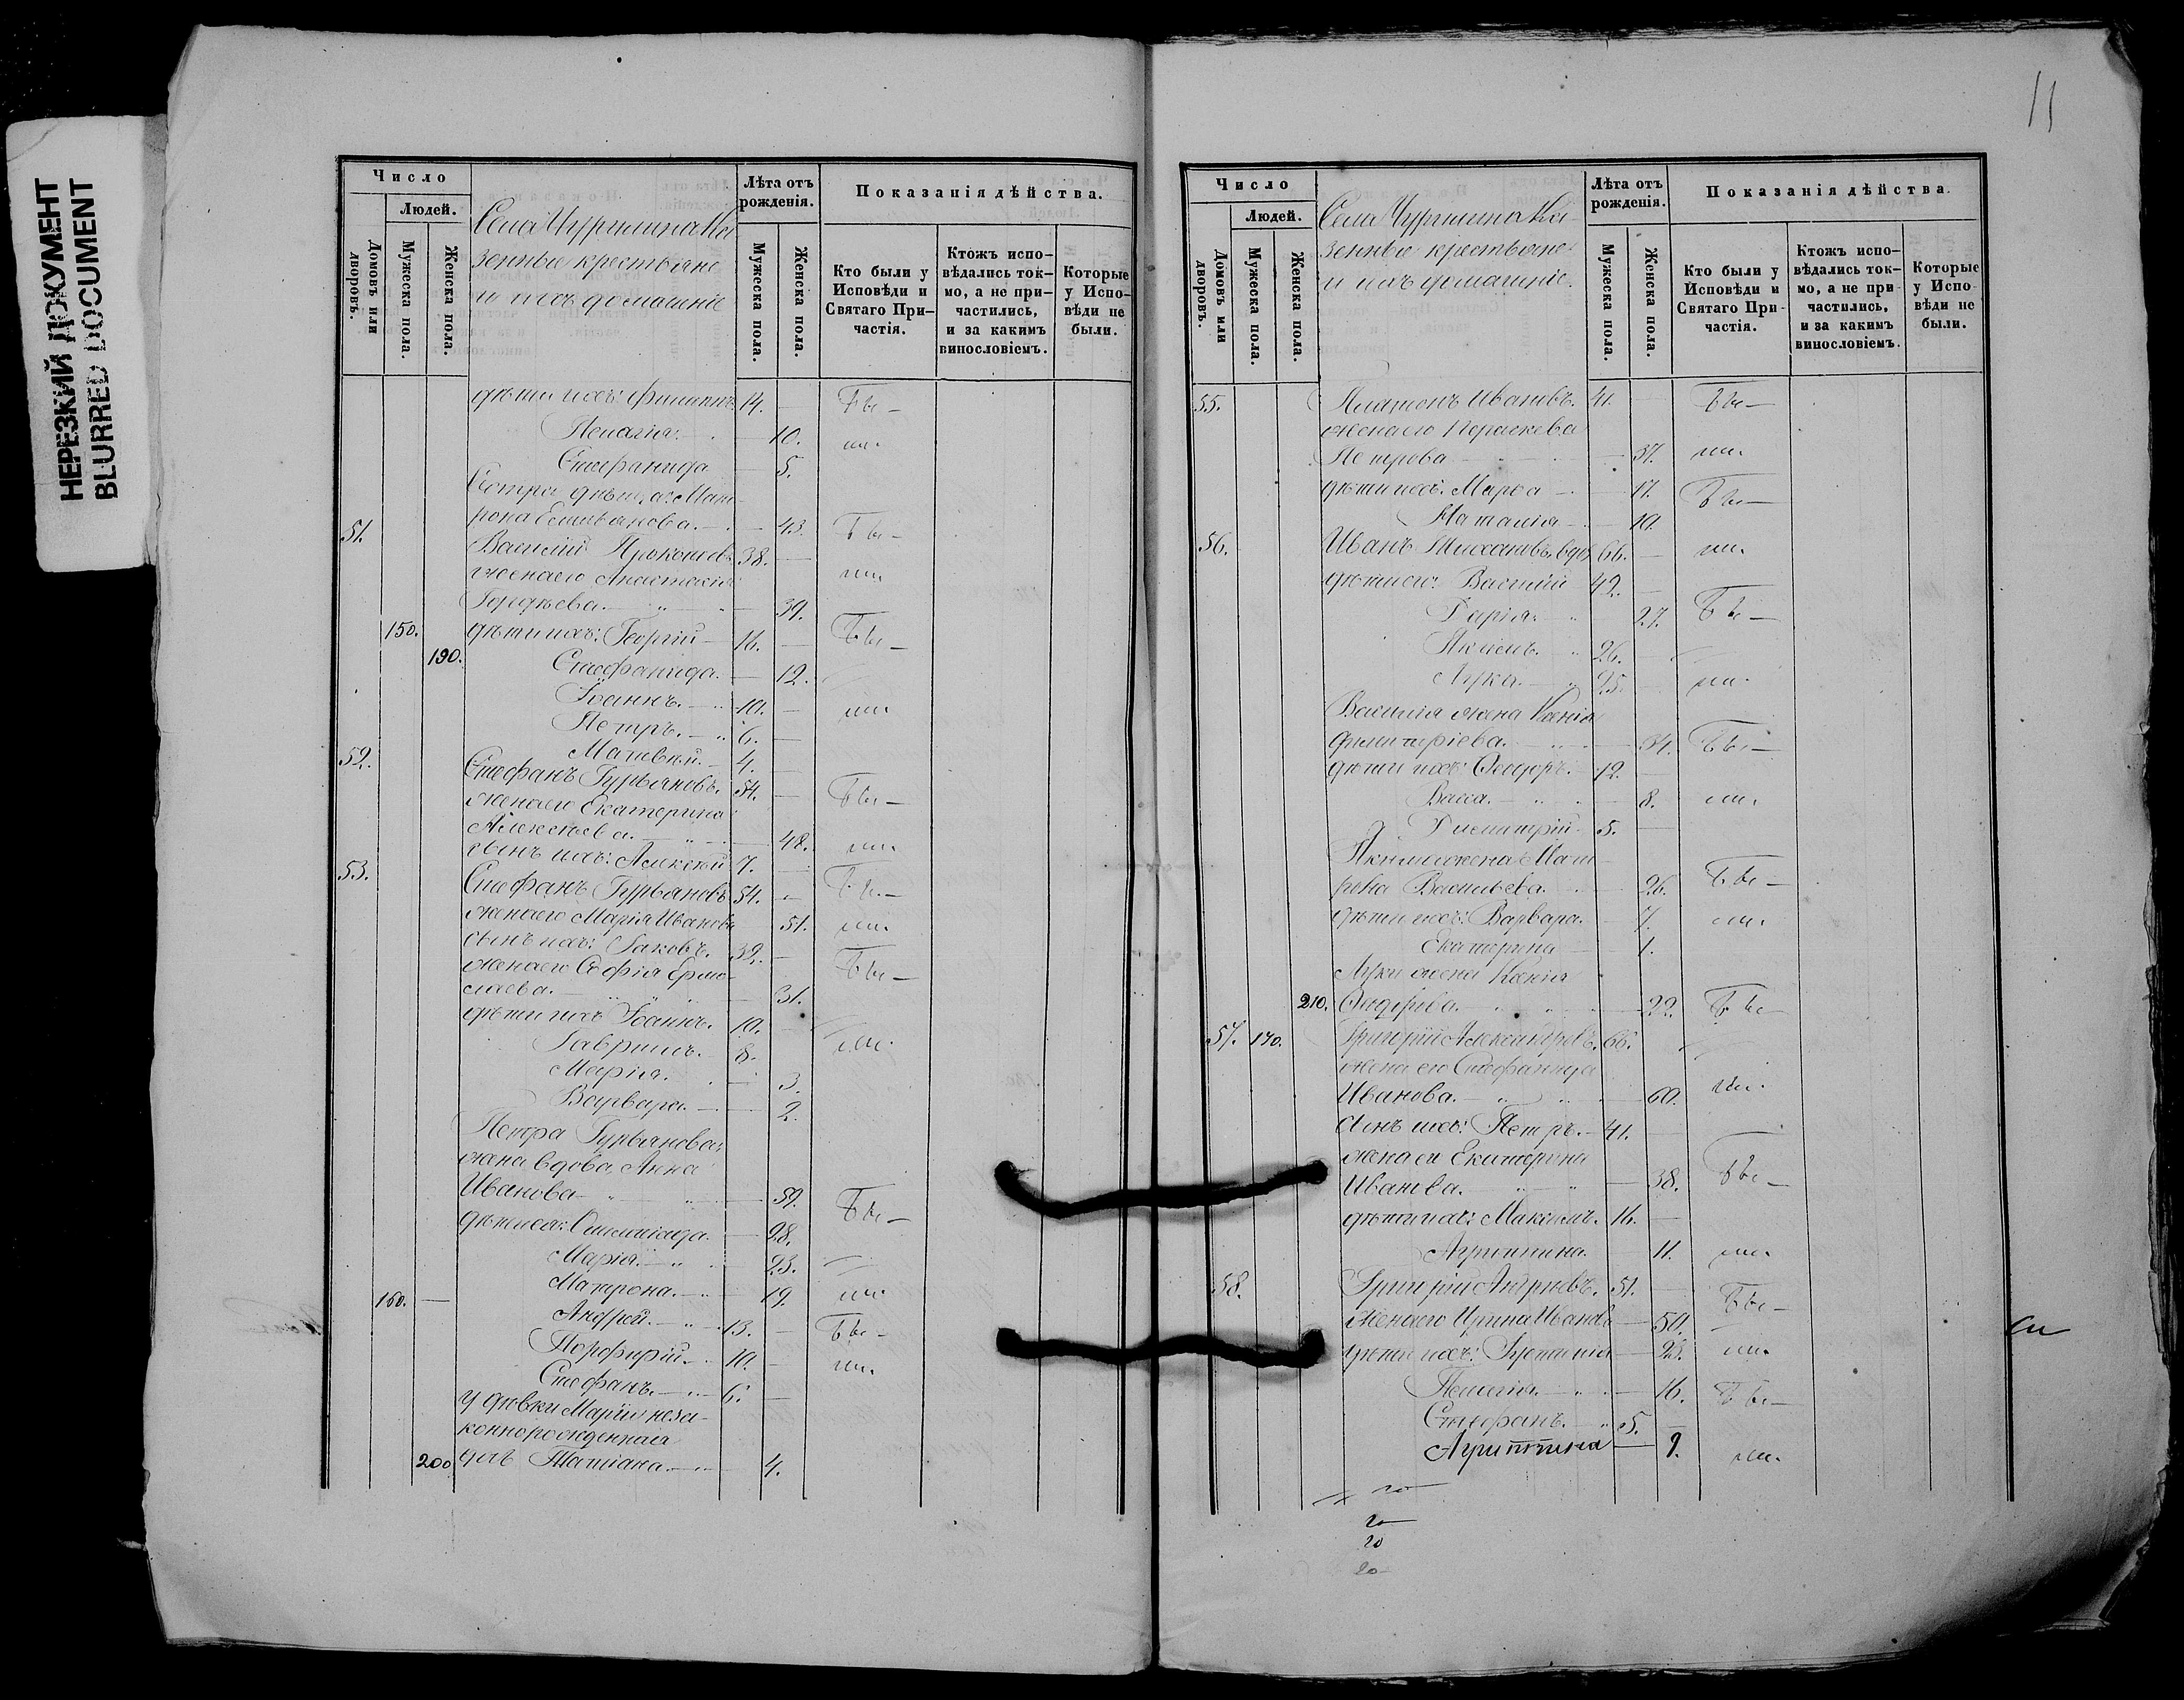 НЕРЕЗКИЙ ДОКУМЕНТ
BLURRED DOCUMENT
Число
Людей.
Домовъ или дворовъ.
Мужеска пола.
Женска пола.
Села Чуриина Ка
зенные крестьяне
и ихъ домашніе
Лѣта отъ рожденія.
Мужеска пола.
Женска пола.
Показанія дѣйства.
Кто были у Исповѣди и Святаго При-частія.
Ктожъ испо-вѣдались ток-мо, а не при-частились, и за какимъ винословіемъ.
Которые у Испо-вѣди не были.
дѣти ихъ: Филиппъ 14. — Бы —
Пелагія. — 10. ли.
Стефанида — 5.
Сестра дѣвица: Мат
рона Емельянова. — 43. Бы —
51. Василій Прокопіевъ 38. —
жена его Анастасія ли.
Гордѣева. — 39.
150. дѣти ихъ: Георгій — 16. — Бы —
190. Стефанида. — 12.
Іоаннъ. — 10. — ли.
Петръ. — 6. —
Матвѣй. — 4. —
52. Стефанъ Гурьяновъ. 54. — Бы —
жена его Екатерина
Алексѣева. — 48. ли.
сынъ ихъ: Алексѣй 7. —
53. Стефанъ Гурьяновъ 54. — Бы —
жена его Марія Иванова 51. ли.
сынъ ихъ: Іаковъ. 32. — Бы —
жена его Софія Ермо
лаева. — 31.
дѣти ихъ Іоаннъ. 10. — ли.
Гавріилъ. 8.
Марія. — 3.
Варвара. — 2.
Петра Гурьянова
жена вдова Анна
Иванова — 59. Бы —
дѣти ея: — 28.
Марія. — 23.
Матрона. — 19. ли
160. — Андрей. — 13. — Бы —
Порфирій. — 10. — ли.
Стефанъ. — 6. —
у дѣвки Маріи неза-
коннорожденная
200 дочь Татіана. — 4.
11
Число
Людей.
Домовъ или дворовъ.
Мужеска пола.
Женска пола.
Села Чуриина Ка
зенные крестьяне
и ихъ домашніе.
Лѣта отъ рожденія.
Мужеска пола.
Женска пола.
Показанія дѣйства.
Кто были у Исповѣди и Святаго При-частія.
Ктожъ испо-вѣдались ток-мо, а не при-частились, и за какимъ винословіемъ.
Которые у Испо-вѣди не были.
55. Платонъ Ивановъ. 41. — Бы —
жена его Параскева
Петрова — 37. ли.
дѣти ихъ: Марѳа — 17. Бы —
Наталія — 10.
56. Иванъ вдов 66. — ли.
дѣти его: Василій 42. —
Дарія. — 27. Бы —
Якимъ. 26. —
Лука. — 25. — ли.
Василія жена Ксенія
Димитріева. — 34. Бы —
дѣти ихъ: Ѳеодоръ. 12. —
Васса. — 8. ли.
Димитрій. 5. —
Якима жена Мат
рона Васильева. — 26. Бы —
дѣти ихъ: Варвара. — 7. ли.
Екатерина — 1.
Луки жена Ксенія
210. Ѳедорова. — 22. Бы —
57. 170. Григорій Александровъ. 66.
жена его Стефанида
Иванова. — 60. ли.
сынъ ихъ: Петръ. — 41. —
жена его Екатерина
Иванова. — 38. Бы —
дѣти ихъ: Максимъ. 16. —
Агриппина. — 11. ли.
58. Григорій Андреевъ. 51. — Бы —
жена его Ирина Иванова — 50.
дѣти ихъ: — 23. ли.
Пелагія. — 16. Бы —
Стефанъ. — 5. —
Агриппина — 9. ли.
20
20
20
20